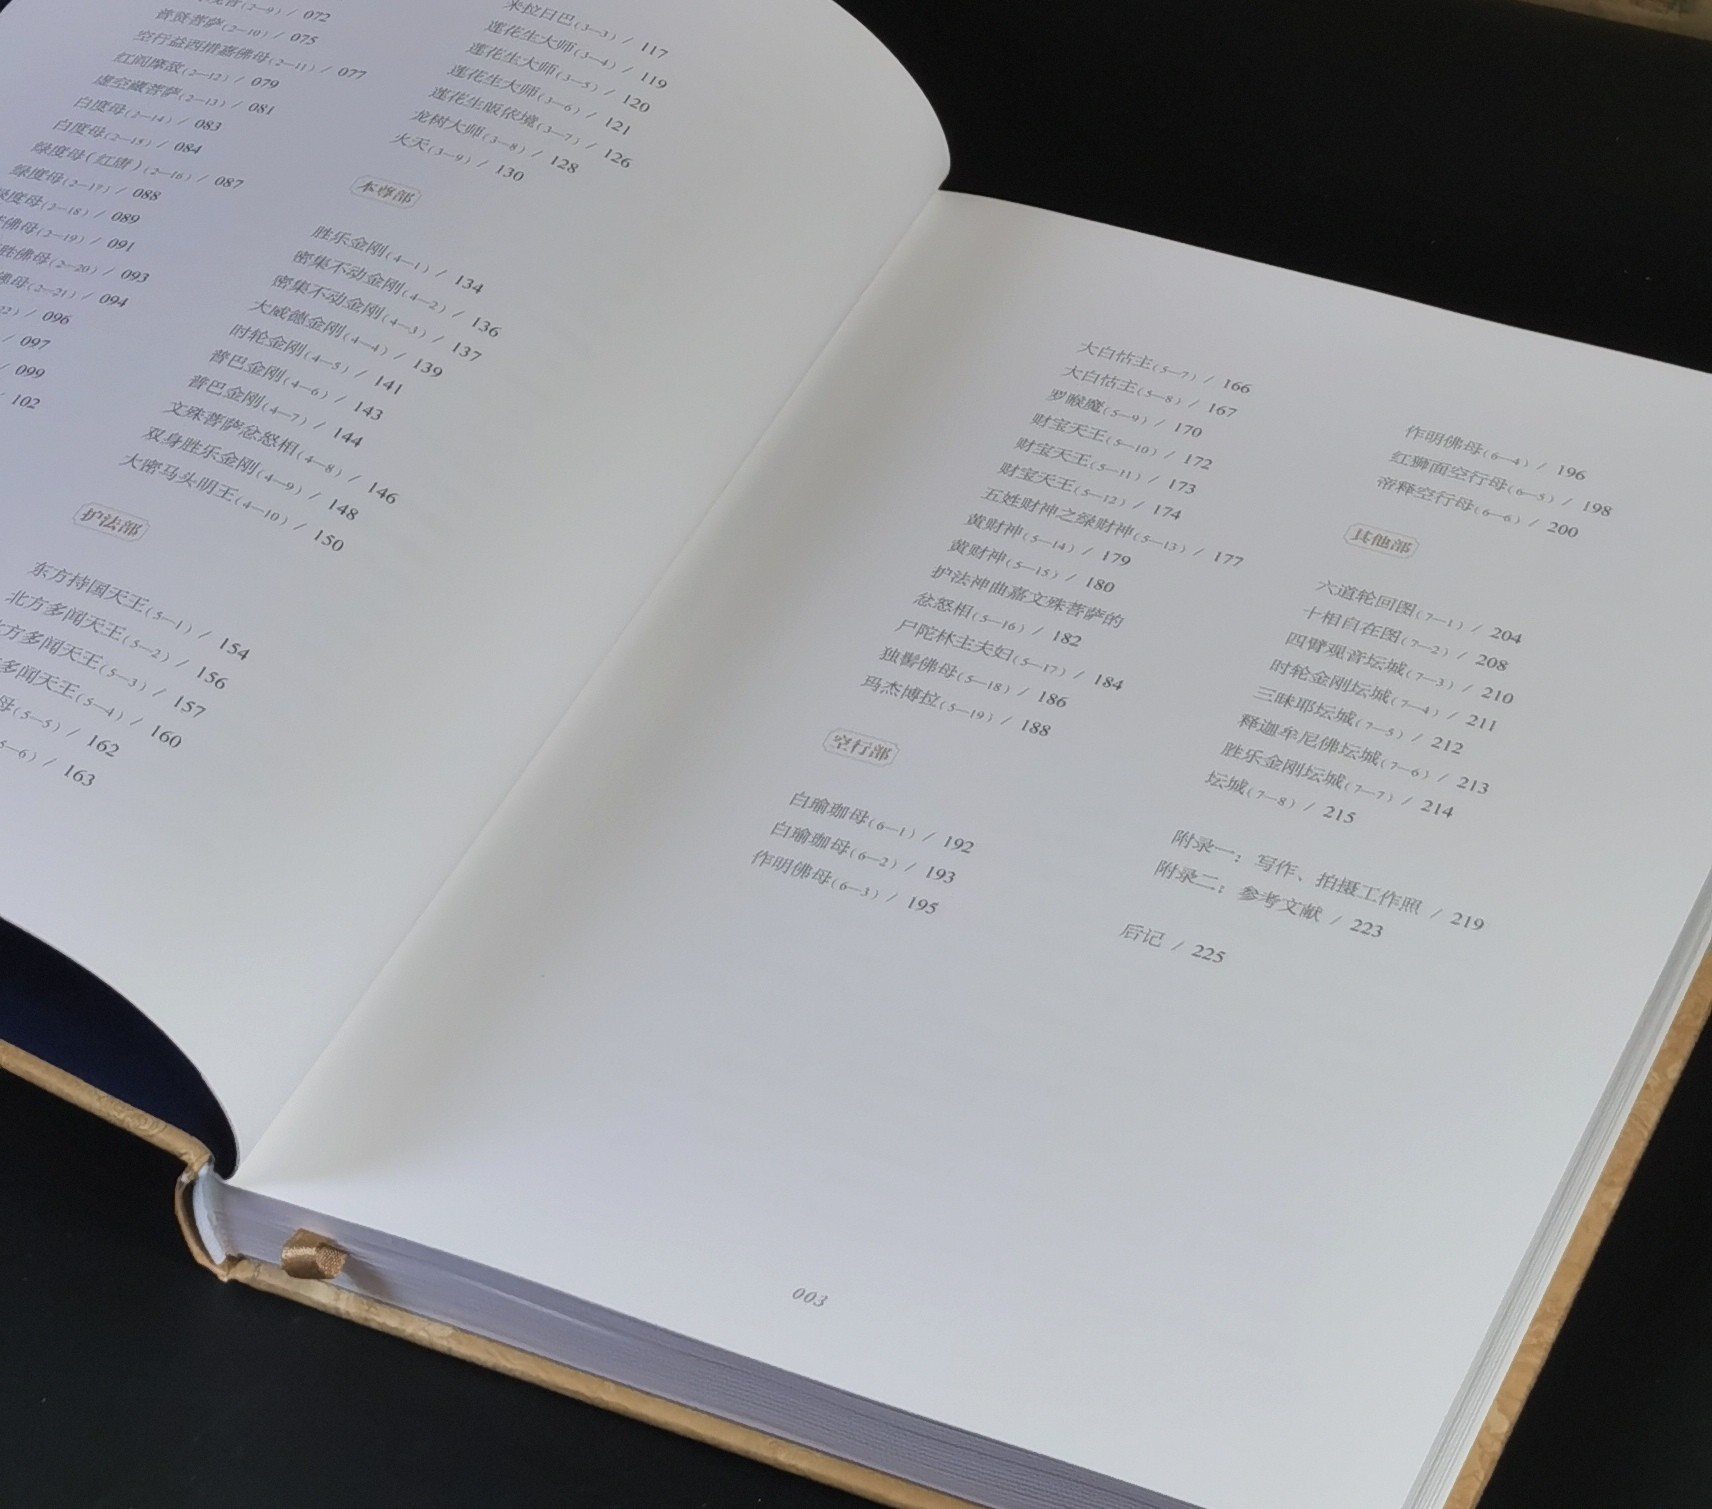 (2—9) / 072
普贤菩萨(2—10) / 075
空行益西措嘉佛母(2—11) / 077
红阎摩敌(2—12) / 079
虚空藏菩萨(2—13) / 081
白度母(2—14) / 083
白度母(2—15) / 084
绿度母(红唐)(2—16) / 087
绿度母(2—17) / 088
绿度母(2—18) / 089
佛母(2—19) / 091
胜佛母(2—20) / 093
佛母(2—21) / 094
22) / 096
/ 097
/ 099
/ 102
米拉日巴(3—3) / 117
莲花生大师(3—4) / 119
莲花生大师(3—5) / 120
莲花生大师(3—6) / 121
莲花生皈依境(3—7) / 126
龙树大师(3—8) / 128
火天(3—9) / 130
本尊部
胜乐金刚(4—1) / 134
密集不动金刚(4—2) / 136
密集不动金刚(4—3) / 137
大威德金刚(4—4) / 139
时轮金刚(4—5) / 141
普巴金刚(4—6) / 143
普巴金刚(4—7) / 144
文殊菩萨忿怒相(4—8) / 146
双身胜乐金刚(4—9) / 148
大密马头明王(4—10) / 150
护法部
东方持国天王(5—1) / 154
北方多闻天王(5—2) / 156
方多闻天王(5—3) / 157
多闻天王(5—4) / 160
母(5—5) / 162
5—6) / 163
大白怙主(5—7) / 166
大白怙主(5—8) / 167
罗睺魔(5—9) / 170
财宝天王(5—10) / 172
财宝天王(5—11) / 173
财宝天王(5—12) / 174
五姓财神之绿财神(5—13) / 177
黄财神(5—14) / 179
黄财神(5—15) / 180
护法神曲嘉文殊菩萨的
忿怒相(5—16) / 182
尸陀林主夫妇(5—17) / 184
独髻佛母(5—18) / 186
玛杰博拉(5—19) / 188
空行部
白瑜珈母(6—1) / 192
白瑜珈母(6—2) / 193
作明佛母(6—3) / 195
作明佛母(6—4) / 196
红狮面空行母(6—5) / 198
帝释空行母(6—6) / 200
其他部
六道轮回图(7—1) / 204
十相自在图(7—2) / 208
四臂观音坛城(7—3) / 210
时轮金刚坛城(7—4) / 211
三昧耶坛城(7—5) / 212
释迦牟尼佛坛城(7—6) / 213
胜乐金刚坛城(7—7) / 214
坛城(7—8) / 215
附录一：写作、拍摄工作照 / 219
附录二：参考文献 / 223
后记 / 225
003